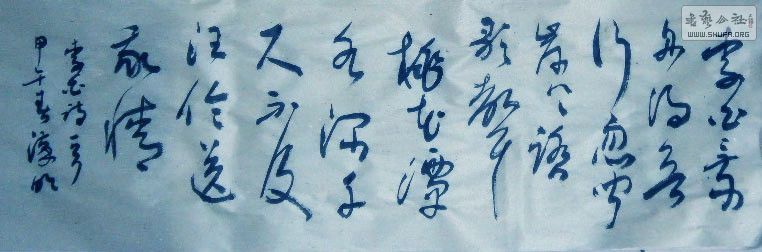 李白乘
舟将欲
行忽闻
岸上踏
歌声
桃花潭
水深千
尺不及
汪伦送
我情
李白诗一首
甲午春
书艺公社
WWW.SHUFA.ORG